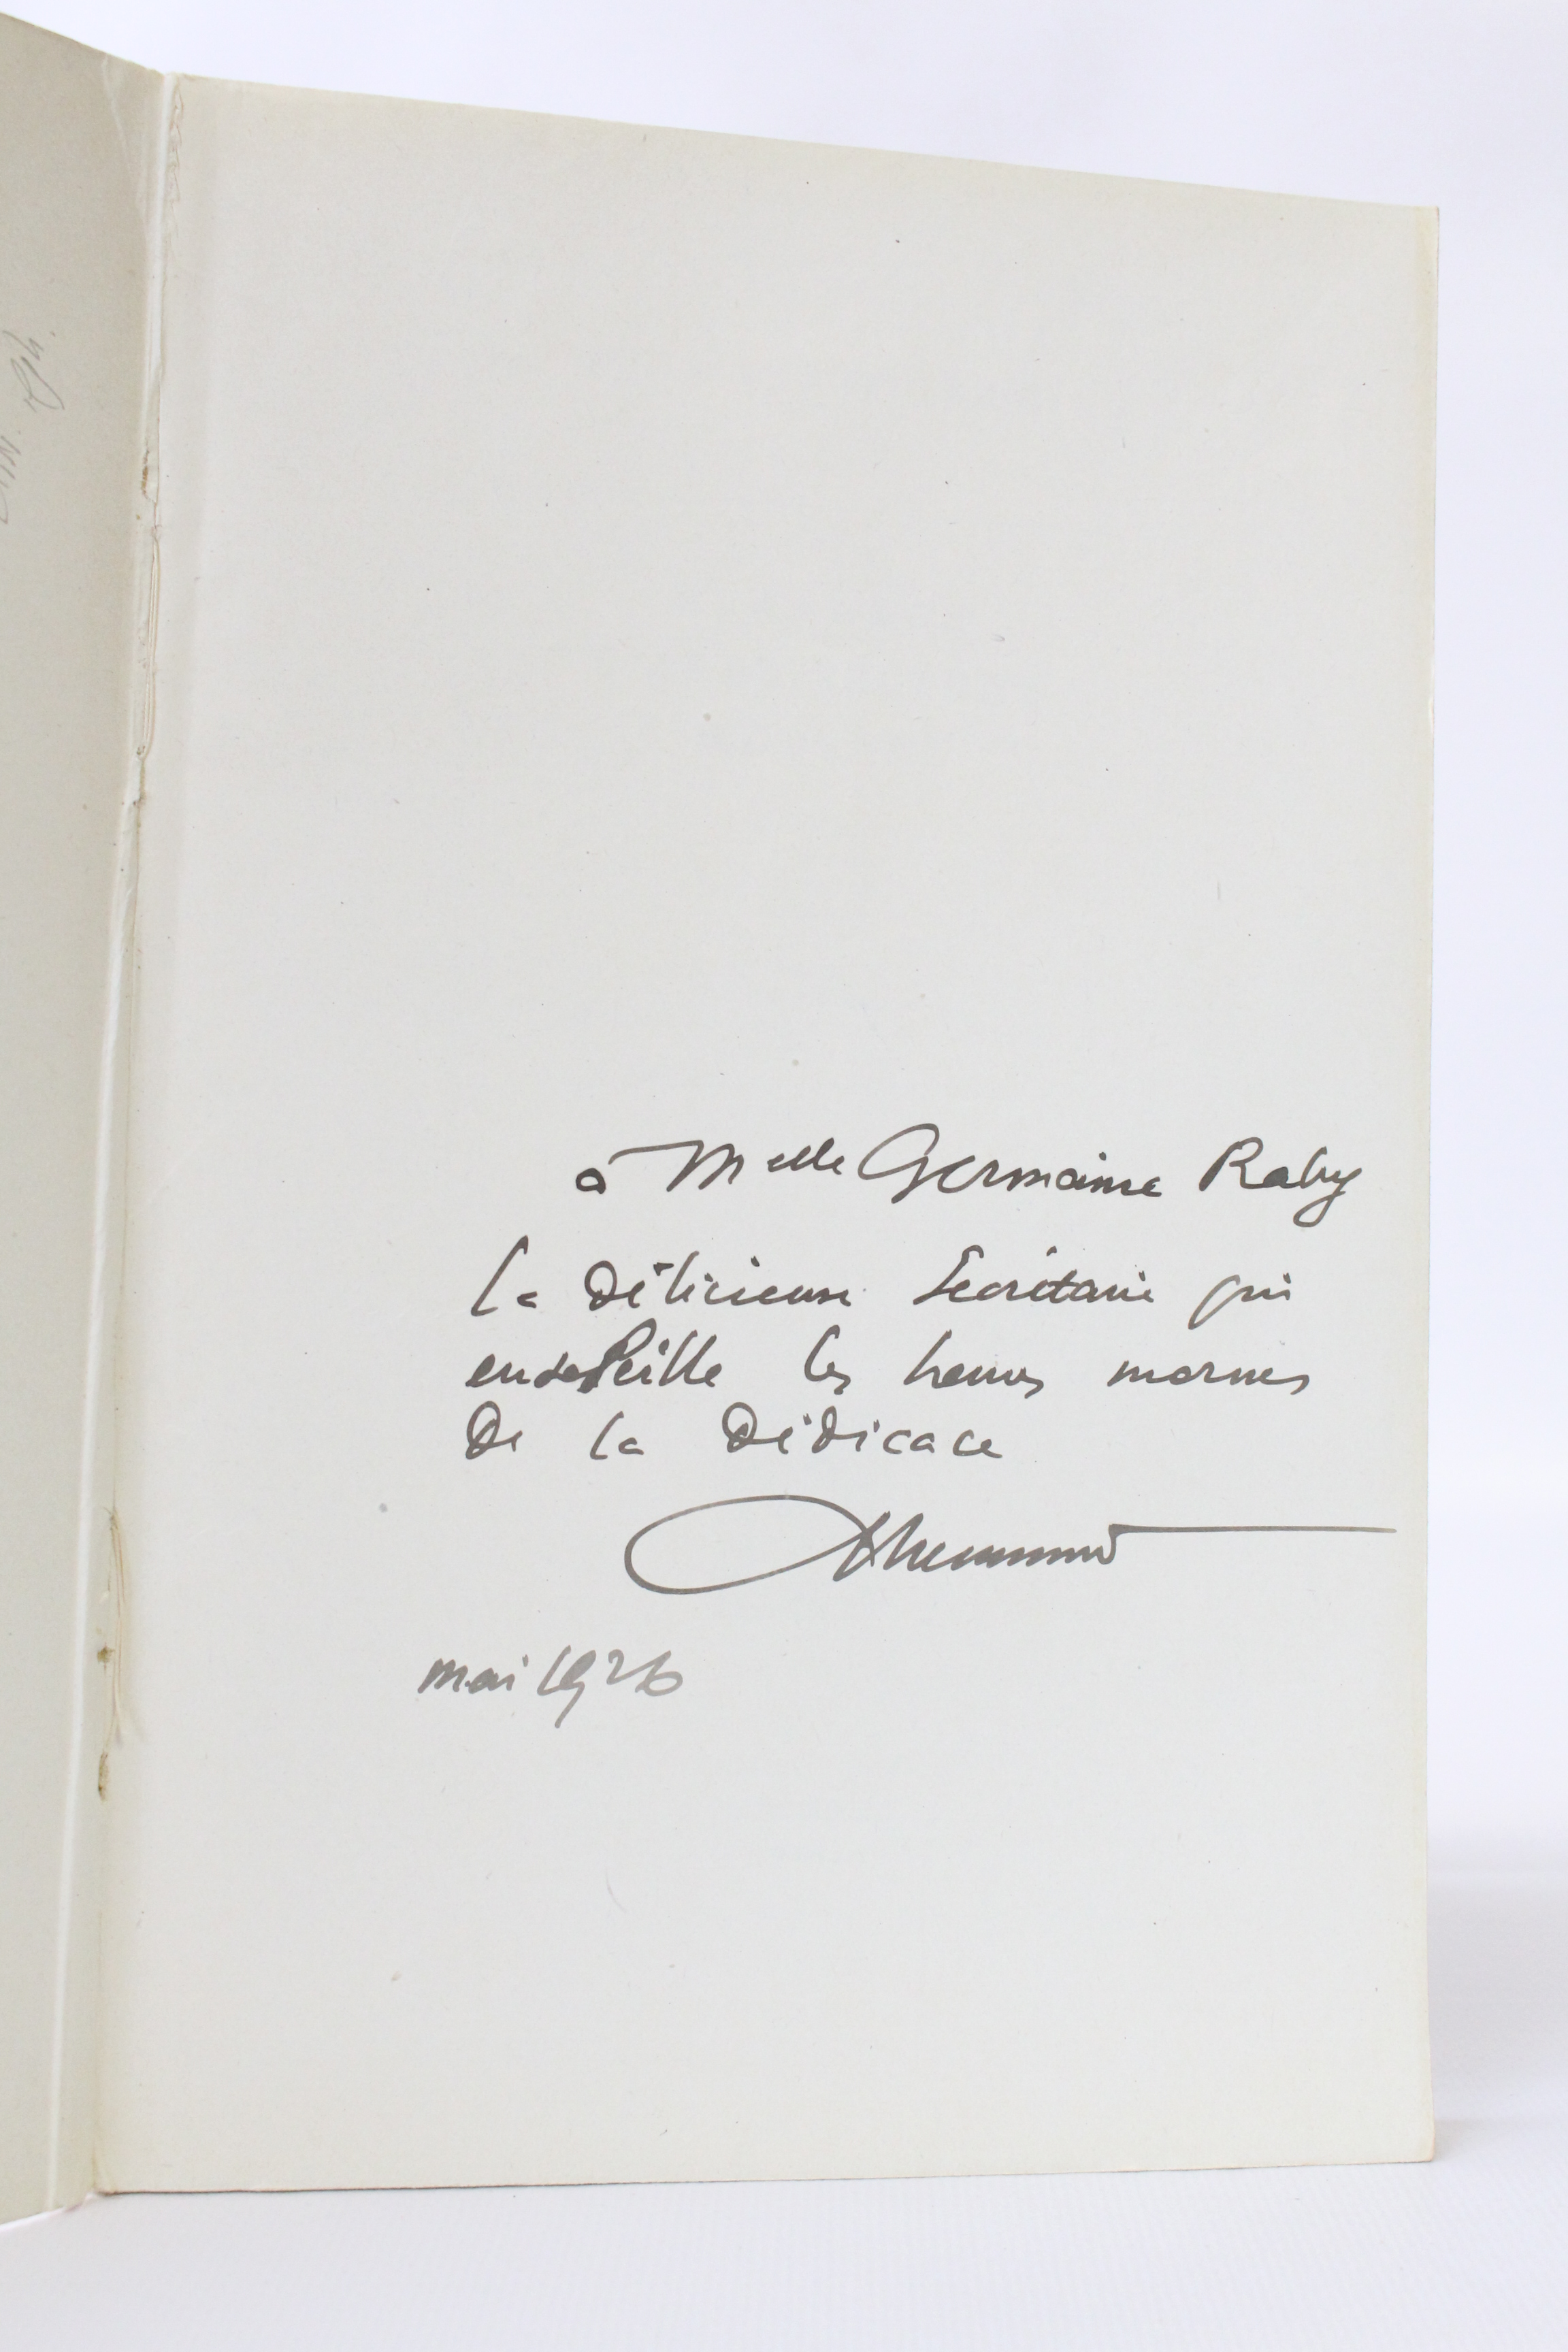 à Melle Germaine Raby
la délicieuse Secrétaire qui
ensoleille les heures mornes
de la dédicace
mai 1926